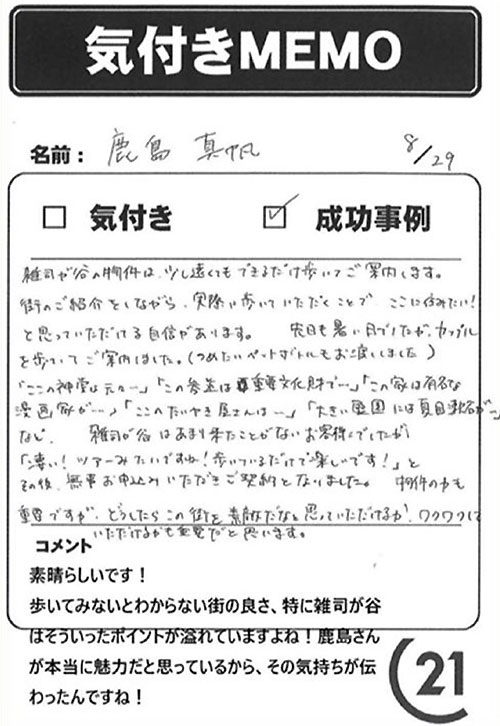 気付きMEMO
名前： 鹿島 真帆 8/29
□ 気付き ☑ 成功事例
雑司が谷の物件は、少し遠くてもできるだけ歩いてご案内します。
街のご紹介をしながら、実際に歩いていただくことで、ここに住みたい!
と思っていただける自信があります。 先日も暑い日でしたが、カップル
を歩いてご案内しました。(つめたいペットボトルもお渡ししました)
「ここの神堂は元々…」「この参道は重要文化財で…」「この家は有名な
漫画家が…」「ここのたいやき屋さんは…」「大きい霊園には夏目漱石が…」
など。 雑司が谷はあまり来たことがないお客様でしたが
「凄い! ツアーみたいですね! 歩いているだけで楽しいです!」と
その後、無事お申込みいただきご契約となりました。 物件の力も
重要ですが、どうしたらこの街を素敵だなと思っていただけるか!、ワクワクして
いただけるかも重要だと思います。
コメント
素晴らしいです！
歩いてみないとわからない街の良さ、特に雑司が谷
はそういったポイントが溢れていますよね！鹿島さん
が本当に魅力だと思っているから、その気持ちが伝
わったんですね！
21